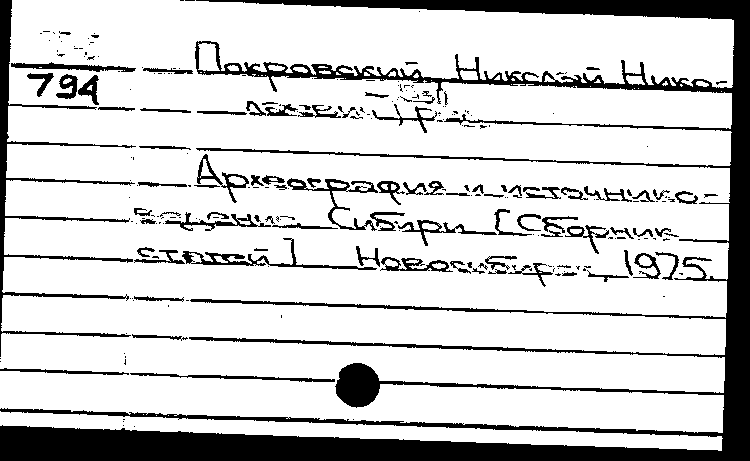 794
Покровский, Николай Нико-
лаевич, ред.
Археография и источнико-
ведение Сибири [Сборник
статей] Новосибирск, 1975.